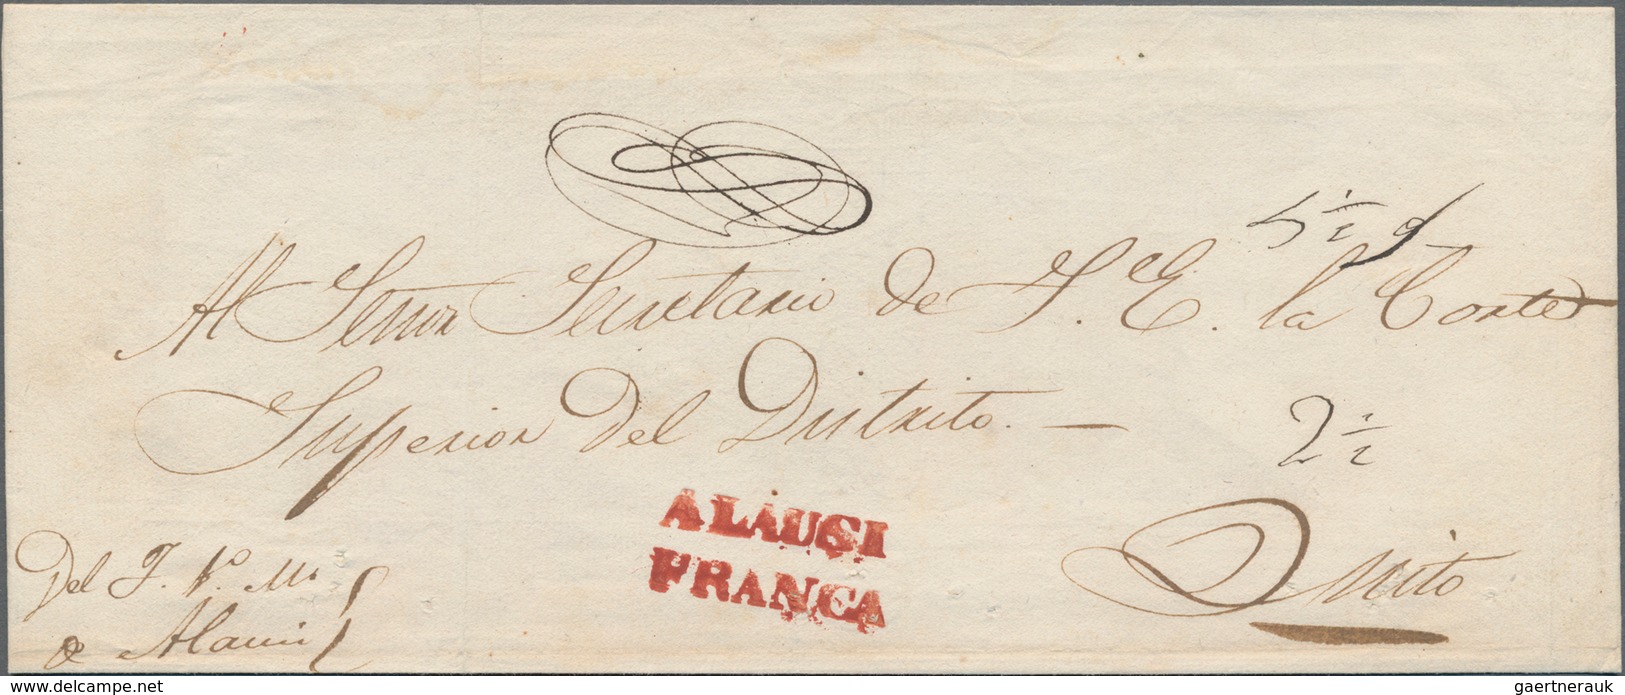 5 1/2
Al Señor Secretario de S. E. la Corte
Superior del Distrito. —
2 1/2
ALAUSI
FRANCA
Quito
Del J. 1º. Ml.
de Alausi
delcampe.net
gaertnerauk